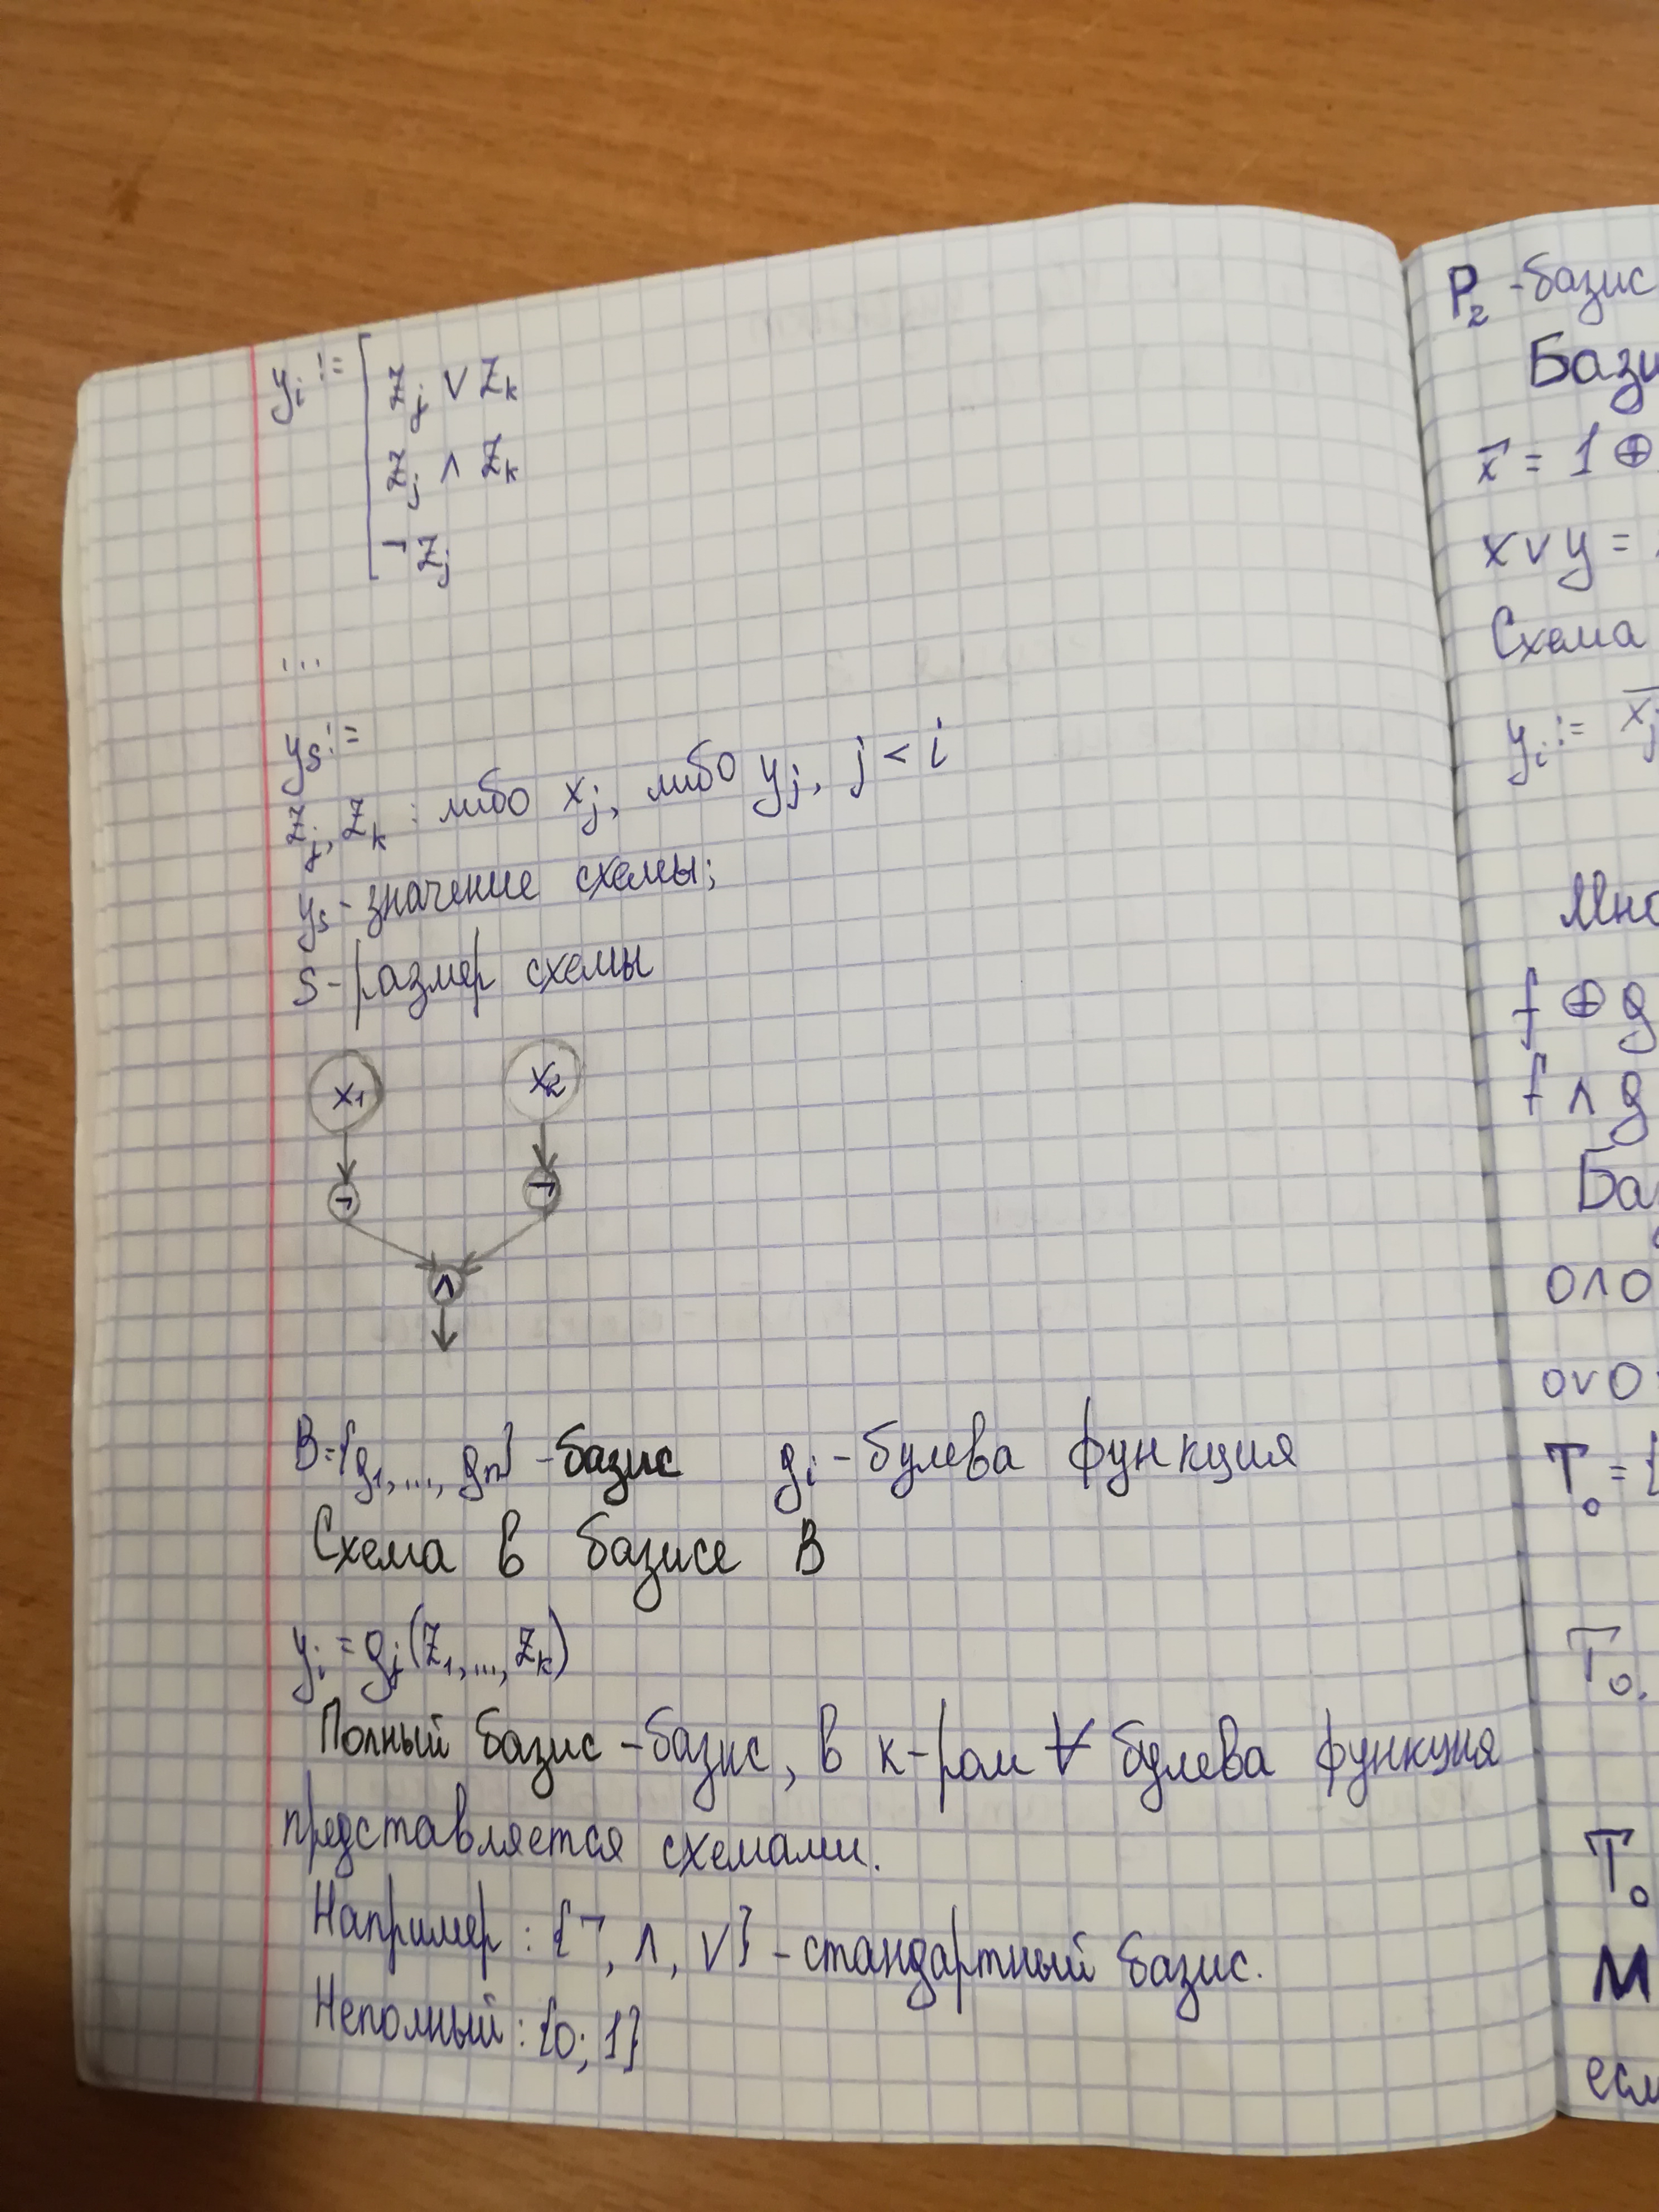 yᵢ := [ zⱼ ∨ zₖ
zⱼ ∧ zₖ
¬zⱼ
...
yₛ :=
zⱼ, zₖ : либо xⱼ, либо yⱼ, j < i
yₛ - значение схемы;
S - размер схемы
x₁ x₂
¬ ¬
∧
B = {g₁, ..., gₙ} - базис gᵢ - булева функция
Схема в базисе B
yᵢ = gⱼ(z₁, ..., zₖ)
Полный базис - базис, в к-ром ∀ булева функция
представляется схемами.
Например: {¬, ∧, ∨} - стандартный базис.
Неполный: {0; 1}
P₂ - базис
Бази
x̄ = 1 ⊕
x ∨ y =
Схема
yᵢ :=
f ⊕ g
f ∧ g
Ба
0 ∧ 0
0 ∨ 0
T₀ = {
T₀,
T₀
M
есл